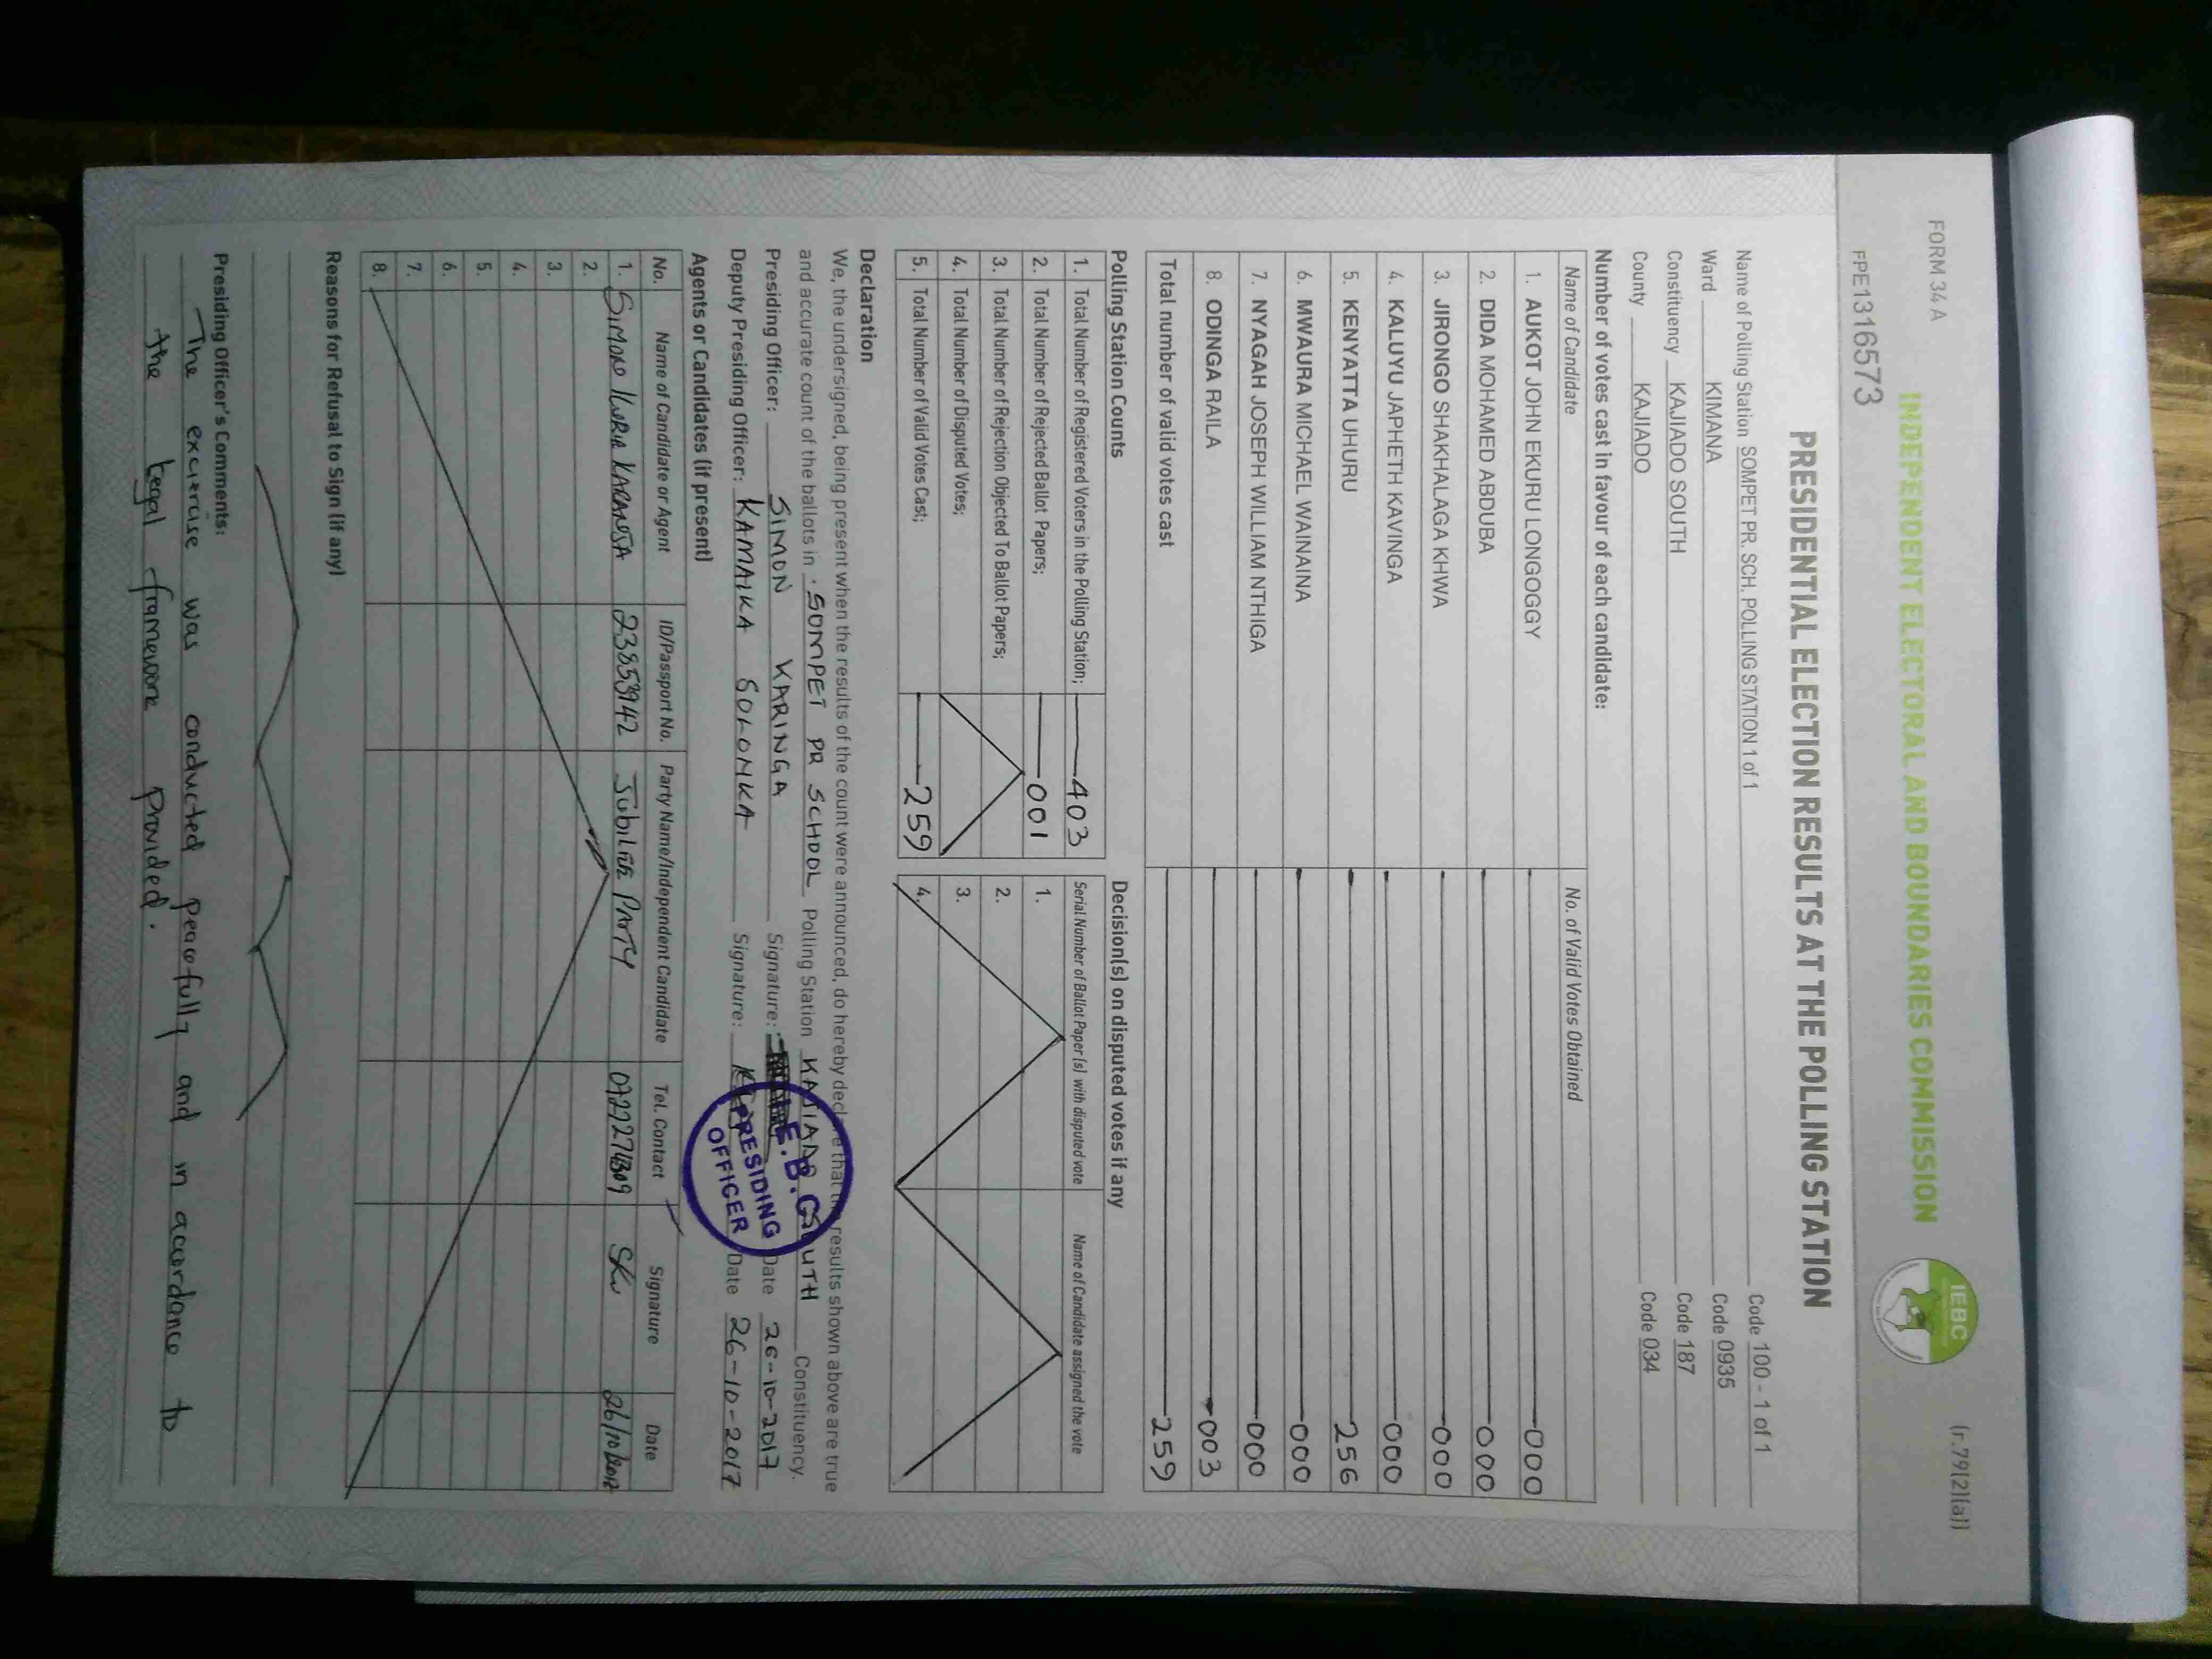 FORM 34 A
(r.79(2)(a))
INDEPENDENT ELECTORAL AND BOUNDARIES COMMISSION
IEBC
FPE1316573
PRESIDENTIAL ELECTION RESULTS AT THE POLLING STATION
Name of Polling Station SOMPET PR. SCH. POLLING STATION 1 of 1 Code 100 - 1 of 1
Ward KIMANA Code 0935
Constituency KAJIADO SOUTH Code 187
County KAJIADO Code 034
Number of votes cast in favour of each candidate:
Name of Candidate No. of Valid Votes Obtained
1. AUKOT JOHN EKURU LONGOGGY 000
2. DIDA MOHAMED ABDUBA 000
3. JIRONGO SHAKHALAGA KHWA 000
4. KALUYU JAPHETH KAVINGA 000
5. KENYATTA UHURU 256
6. MWAURA MICHAEL WAINAINA 000
7. NYAGAH JOSEPH WILLIAM NTHIGA 000
8. ODINGA RAILA 003
Total number of valid votes cast 259
Polling Station Counts
1. Total Number of Registered Voters in the Polling Station; 403
2. Total Number of Rejected Ballot Papers; 001
3. Total Number of Rejection Objected To Ballot Papers;
4. Total Number of Disputed Votes;
5. Total Number of Valid Votes Cast; 259
Decision(s) on disputed votes if any
Serial Number of Ballot Paper (s) with disputed vote Name of Candidate assigned the vote
1.
2.
3.
4.
Declaration
We, the undersigned, being present when the results of the count were announced, do hereby declare that the results shown above are true
and accurate count of the ballots in SOMPET PR SCHOOL Polling Station KAJIADO SOUTH Constituency.
Presiding Officer: SIMON KARINGA Signature: Date 26-10-2017
Deputy Presiding Officer: KAMAIKA SOLONKA Signature: Date 26-10-2017
PRESIDING
OFFICER
Agents or Candidates (if present)
No. Name of Candidate or Agent ID/Passport No. Party Name/Independent Candidate Tel. Contact Signature Date
1. 23853942 Jubilee PARTY
2.
3.
4.
5.
6.
7.
8.
Reasons for Refusal to Sign (if any)
Presiding Officer's Comments:
The exercise was conducted peacefully and in accordance to
the legal framework provided.